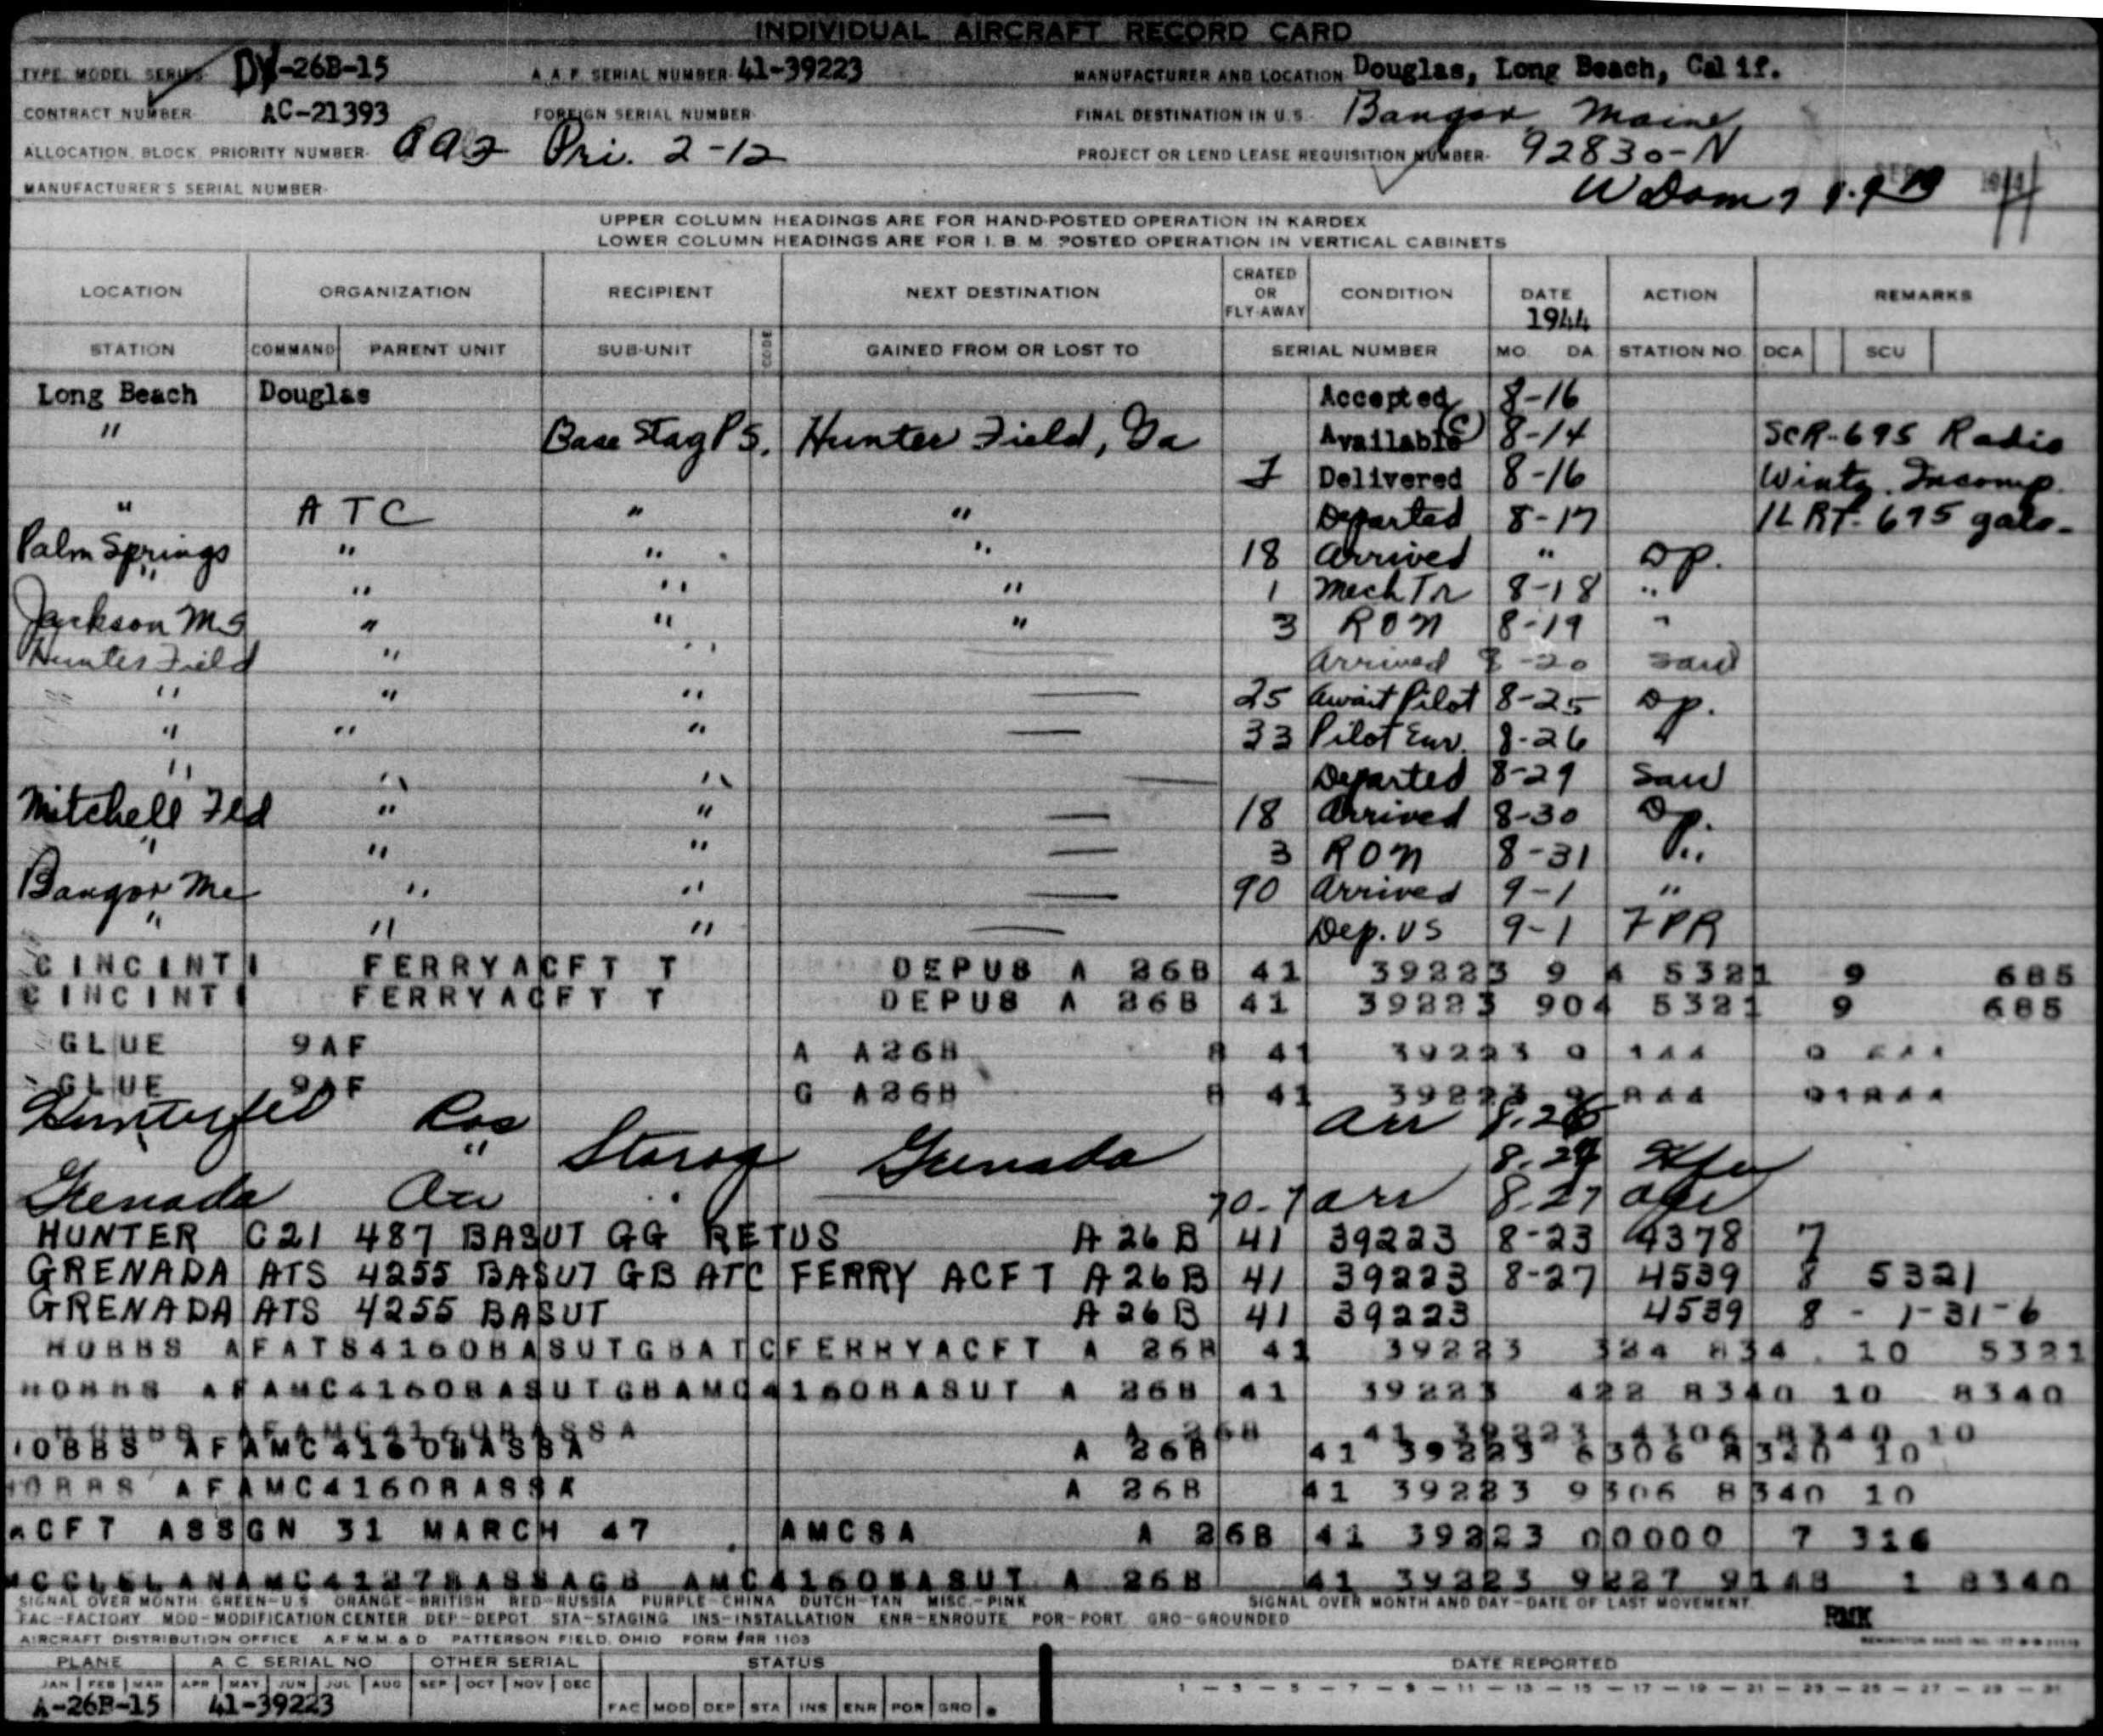 INDIVIDUAL AIRCRAFT RECORD CARD
TYPE MODEL SERIES -26B-15 A.A.F. SERIAL NUMBER 41-39223 MANUFACTURER AND LOCATION Douglas, Long Beach, Calif.
CONTRACT NUMBER AC-21393 FOREIGN SERIAL NUMBER FINAL DESTINATION IN U.S. Bangor Maine
ALLOCATION, BLOCK, PRIORITY NUMBER Pri. 2-12 PROJECT OR LEND LEASE REQUISITION NUMBER 92830-N
MANUFACTURER'S SERIAL NUMBER
UPPER COLUMN HEADINGS ARE FOR HAND-POSTED OPERATION IN KARDEX
LOWER COLUMN HEADINGS ARE FOR I. B. M. POSTED OPERATION IN VERTICAL CABINETS
LOCATION ORGANIZATION RECIPIENT NEXT DESTINATION CRATED OR FLY-AWAY CONDITION DATE 1944 ACTION REMARKS
STATION COMMAND PARENT UNIT SUB-UNIT CODE GAINED FROM OR LOST TO SERIAL NUMBER MO. DA. STATION NO. DCA SCU
Long Beach Douglas Accepted 8-16
" Base Stag P S. Hunter Field, Ga Available 8-14 SCR-695 Radio
Delivered 8-16 Wintz. Incomp.
" ATC " " Departed 8-17
Palm Springs " " " 18 Arrived " Dp.
" " " " 1 Mech Tr 8-18 "
Jackson Ms " " " 3 RON 8-19 "
Hunter Field " " Arrived 8-20 Saw
" " " 25 Await Pilot 8-25 Dp.
" " " 33 Pilot Enr. 8-26 "
" " " Departed 8-29 Saw
Mitchell Fld " " 18 Arrived 8-30 Dp.
" " " 3 RON 8-31 "
Bangor Me " " 90 Arrived 9-1 "
" " " Dep. US 9-1 FPR
CINCINTI FERRYACFT T DEPUS A 26B 41 39223 9 4 5321 9 685
CINCINTI FERRYACFT T DEPUS A 26B 41 39223 904 5321 9 685
GLUE 9AF A A26B 41 39223
GLUE 9AF G A26B 41 39223
Hunterfld Arr 8-26
" Storag Grenada
Grenada Arr 8-27
HUNTER C21 487 BASUT GG RETUS A 26 B 41 39223 8-23 4378 7
GRENADA ATS 4255 BASUT GB ATC FERRY ACFT A 26 B 41 39223 8-27 4539 8 5321
GRENADA ATS 4255 BASUT A 26 B 41 39223 4539 8 - 1-31-6
HOBBS AFATS4160BASUTGBATCFERRYACFT A 26B 41 39223 324 834 10 5321
HOBBS AFAMC4160BASUTGBAMC4160BASUT A 26B 41 39223 422 8340 10 8340
HOBBS AFAMC4160BASSA A 26B 41 39223 4306 8340 10
HOBBS AFAMC4160BASSA A 26B 41 39223 6306 8340 10
HOBBS AFAMC4160BASSA A 26B 41 39223 9306 8340 10
ACFT ASSGN 31 MARCH 47 AMCSA A 26B 41 39223 00000 7 316
MCCLELANAMC4127BASSAGB AMC4160BASUT A 26B 41 39223 9227 9148 1 8340
SIGNAL OVER MONTH GREEN-U.S. ORANGE-BRITISH RED-RUSSIA PURPLE-CHINA DUTCH-TAN MISC.-PINK SIGNAL OVER MONTH AND DAY-DATE OF LAST MOVEMENT.
FAC-FACTORY MOD-MODIFICATION CENTER DEP-DEPOT STA-STAGING INS-INSTALLATION ENR-ENROUTE POR-PORT GRO-GROUNDED RMK
AIRCRAFT DISTRIBUTION OFFICE A.F.M.M. & D. PATTERSON FIELD, OHIO FORM #RR 1103
PLANE A.C. SERIAL NO OTHER SERIAL STATUS DATE REPORTED
JAN FEB MAR APR MAY JUN JUL AUG SEP OCT NOV DEC 1 - 3 - 5 - 7 - 9 - 11 - 13 - 15 - 17 - 19 - 21 - 23 - 25 - 27 - 29 - 31
A-26B-15 41-39223 FAC MOD DEP STA INS ENR POR GRO